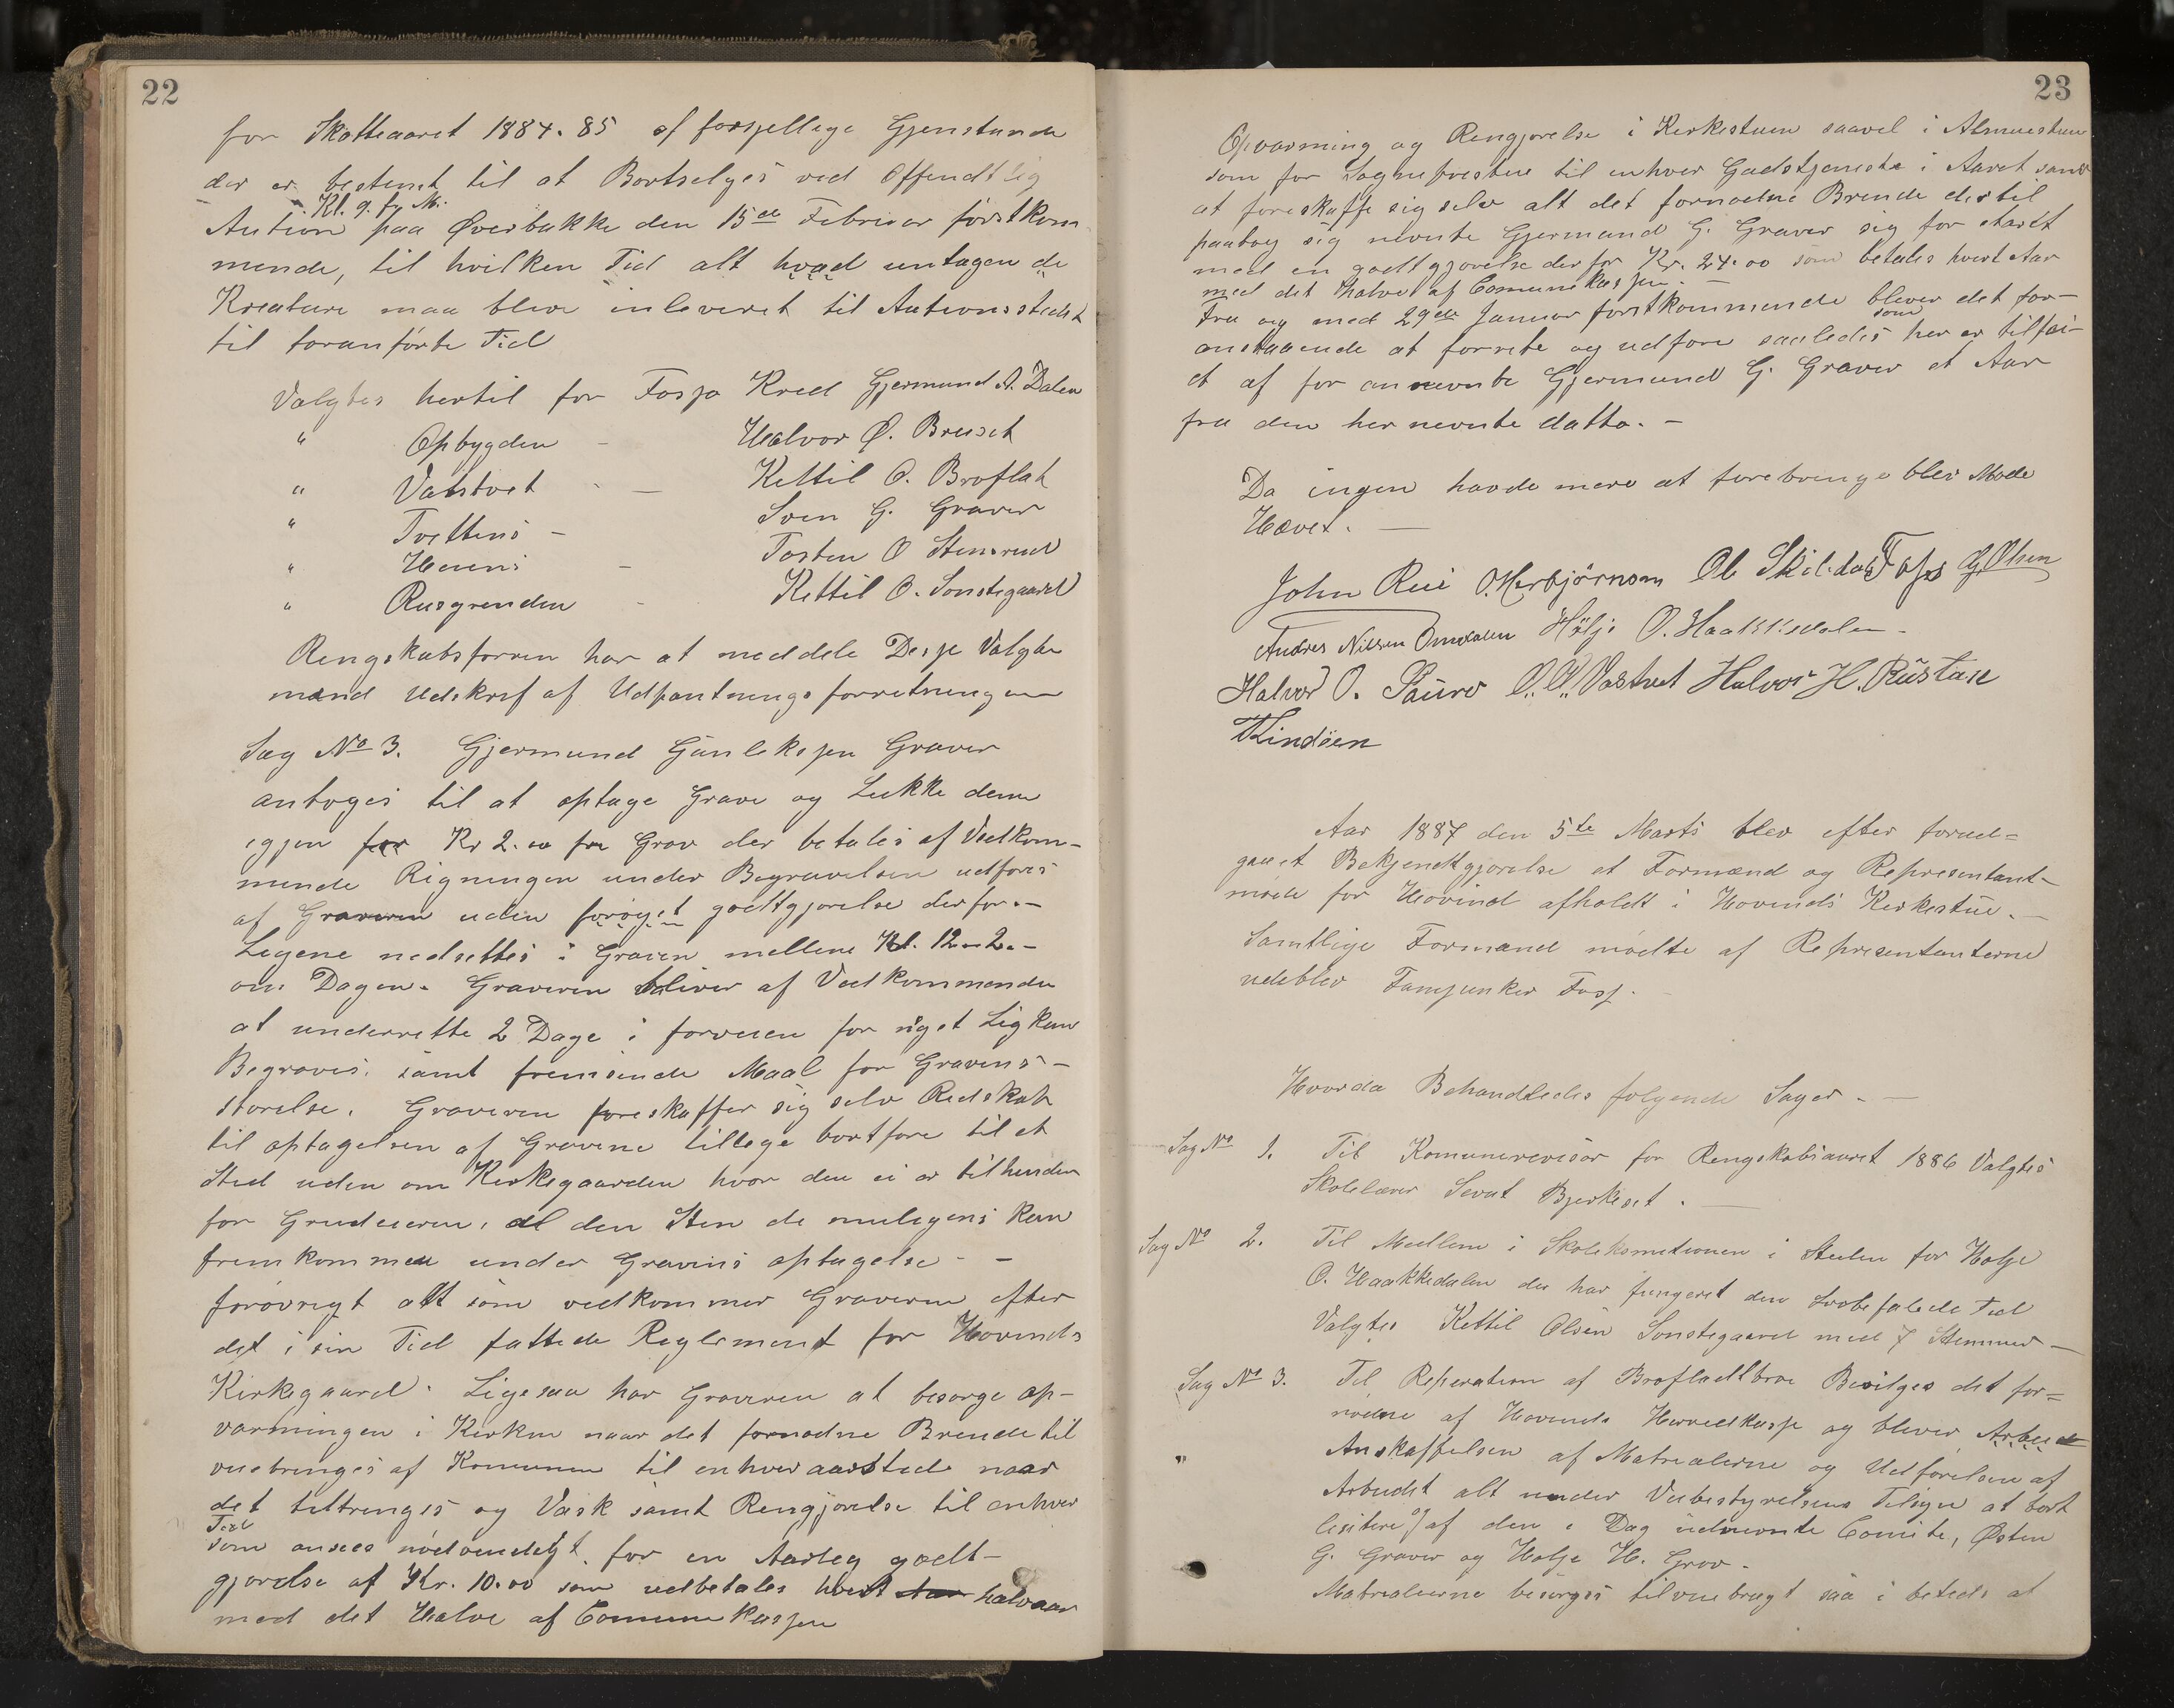 22
for Skatteaaret 1884.85 af forsjellige Gjenstande
der er bestemt til at Bortselges ved Offendtlig
Kl. 9. fr M.
Aution paa Øverbakke den 15de Februar først kom
mende, til hvilken Tid alt hvad untagen de
Kreature maa blive inleveret til Autionsstedet
til foranførte Tid
Valgtes hertil for Fosso Kred Gjermund A. Dalen
" Opbygden - Halvor Ø. Bruset
" Vatstvet - Kettil O. Broflat
" Tvettens - Sven G. Graver
" Hovins - Tosten O Stensrud
" Rusgrenden - Kettil O. Sonstegaard
Rengskabsføren har at meddele Desse Valgte
mænd Udskrif af Udpantningsforretningen
Sag No 3. Gjermund Gunleksen Graver
antoges til at optage Grave og Lukke dem
igjen for Kr 2.00 pr Grav der betales af Vedkom-
mende Rigningen under Begravelsen udføres
af Graveren uden forøget godtgjørelse derfor.-
Ligene nedsettes i Graven mellem Kl. 12-2.-
om Dagen. Graveren bliver af Vedkommende
at underrette 2 Dage i forveien før noget Lig kan
Begraves. samt fremsende Maal for Gravens-
størelse. Graveren foreskaffer sig selv Redskab
til optagelsen af Gravene tillige bortføre til et
Sted uden om Kirkegaarden hvor den ei er til hinder
for Grundeieren, al den Sten de muligens kan
fremkommen under Gravens optagelse - -
forøvrigt alt som vedkommer Graveren efter
det i sin Tid fattede Reglement for Hovinds
Kirkegaard. Ligesaa har Graveren at besørge op-
varmingen i Kirken naar det fornødne Brende til
veiebringes af Komunen til enhver aarstede naar
det tiltrenges og Vask samt Rengjørelse til enhver
Tid
som ansees nødvendigt. for en Aarleg godt-
gjørelse af Kr. 10.00 som udbetales hvert Aar halvaar
med det Halve af Comunekassen
23
Opvarming og Rengjørelse i Kirkestuen saavel i Almuestuen
som for Sogneprestene til enhver Gudstjeneste i Aaret samt
at foreskaffe sig selv alt det fornødne Brende dertil
paatog sig nevnte Gjermund G. Graver sig for Aaret
med en godtgjørelse derfor Kr. 24.00 som betales hvert Aar
med det Halve af Comunekassen. -
Fra og med 29de Januar førstkommende bliver det for-
som
anstaaende at forrete og udføre saaledes her er tilføi-
et af for annevnte Gjermund G. Graver et Aar
fra den her nevnte datto. -
Da ingen havde mere at forebringe blev Møde
Hævet. -
John Rui O. Herbjörnsen Ole Skildas Foss G. Olsen
Andres Nilsen Omdalen Hölje O. Haakkedalen -
Halvor O. Sauro O. O. Vastvet Halvor H. Rustan
T Lindöen
Aar 1887 den 5te Marts blev efter forud=
gaaet Bekjendtgjørelse et Formænd og Representant-
møde for Hovind afholdt i Hovinds Kirkestue. -
Samtlige Formænd mødte af Representanterne
udeblev Tamjunker Foss. -
Hvorda Behandledes følgende Sager. -
Sag No 1. Til Komunerevisor for Rengskabsaaret 1886 Valgtes
Skolelærer Sevat Bjerkeset. -
Sag No 2. Til Medlem i Skolekomitionen i Steden for Holje
O. Haakkedalen der har fungeret den Lovbefalede Tid
Valgtes Kettil Olsen Sonstegaard med 7 Stemmer -
Sag No 3. Til Reperation af Brofladtbroe Bevilges det for=
nødne af Hovinds Herredkasse og bliver Arbeide
" Anskaffelsen af Matrealerne og Udførelsen af
Arbeidet alt under Veibestyrelsens Tilsyn at bort
lisitere af den i Dag udnevnte Comite, Østen
G. Graver og Holje H. Grov.
Matrealierne besørges tilveiebragt saa i beteds at